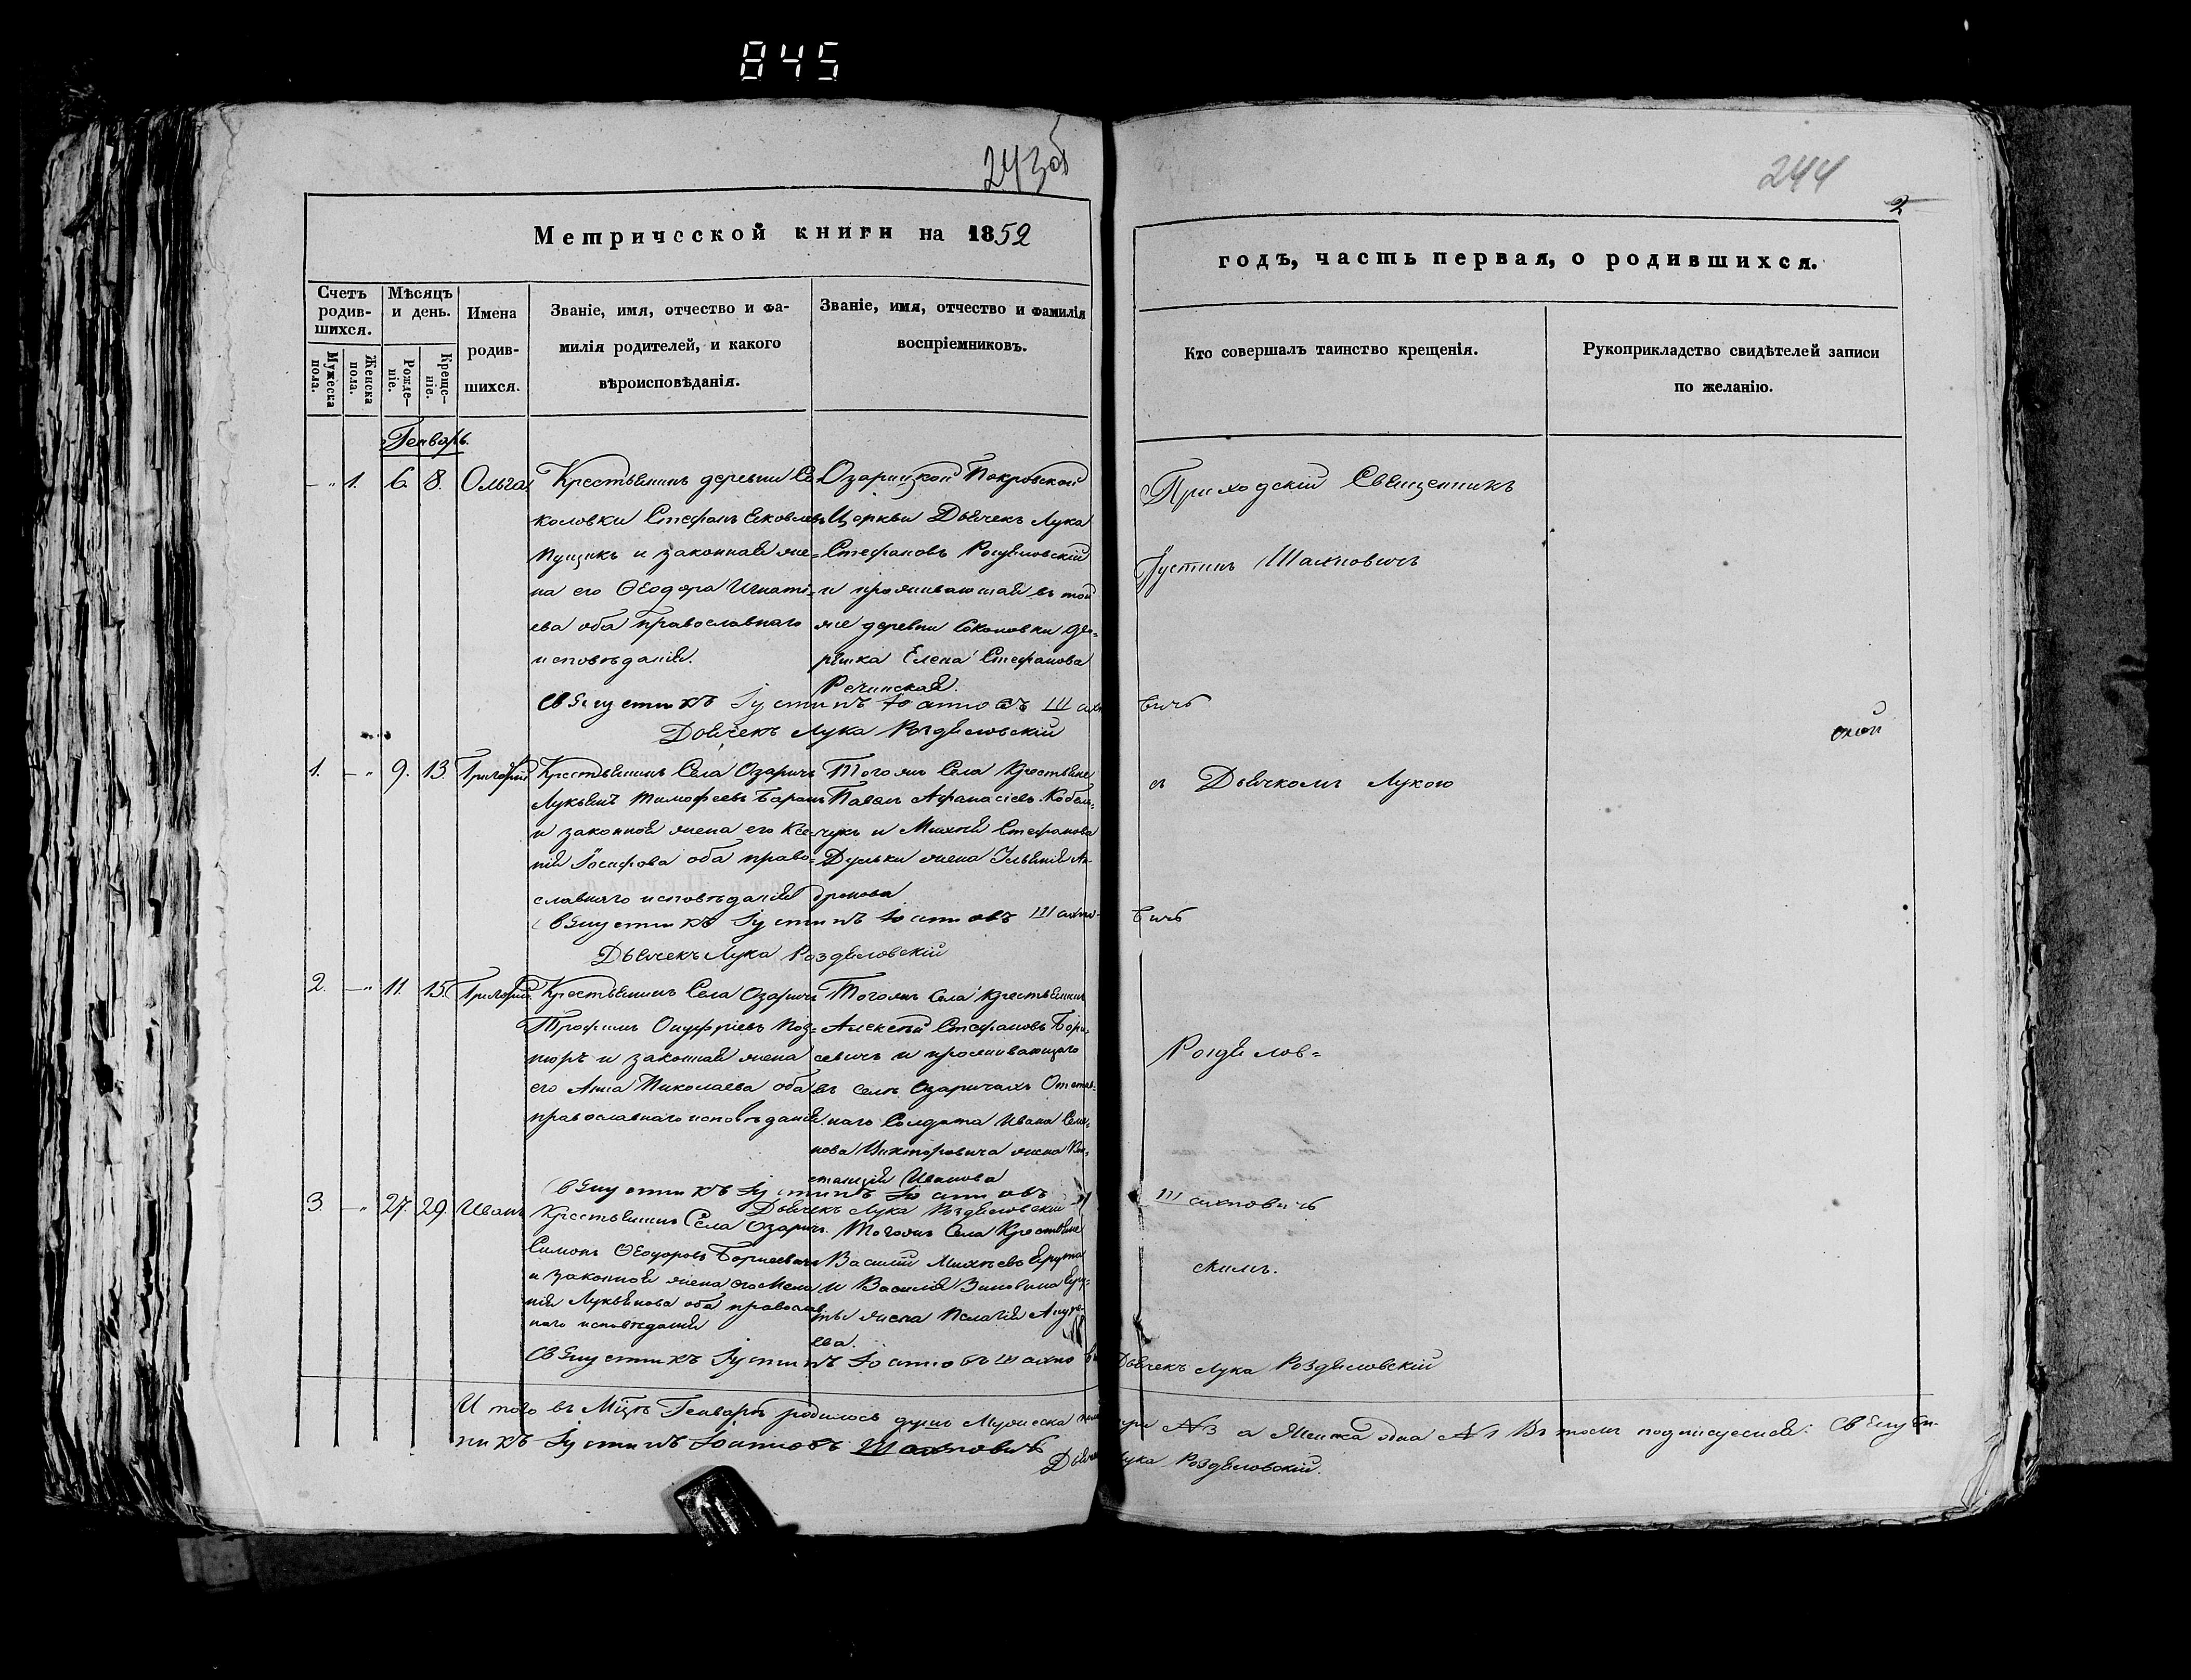 845
243об
244
2
Метрической книги на 1852
годъ, часть первая, о родившихся.
Счетъ родив-шихся.
Мѣсяцъ и день.
Имена родив-шихся.
Званіе, имя, отчество и фа-
милія родителей, и какого
вѣроисповѣданія.
Званіе, имя, отчество и фамилія
воспріемниковъ.
Мужеска пола.
Женска пола.
Рожде-ніе.
Креще-ніе.
Кто совершалъ таинство крещенія.
Рукоприкладство свидѣтелей записи
по желанію.
Генварь.
1. 6. 8. Ольга
Крестьянинъ деревни Со-
коловки Стефанъ Яковлевъ
и законная же-
на его Ѳеодора Игнаті-
ева оба православнаго
исповѣданія.
Озарицкой Покровской
Церкви Дьячекъ Лука
Стефановъ Роздяловскій
и проживающая въ той
же деревни Соколовки дво-
рянка Елена Стефанова
Речинская.
Приходскій Священникъ
Іустинъ Шахновичъ
Священникъ Іустинъ Шахновичъ
Дьячекъ Лука Роздяловскій
1. 9. 13. Григорій
Крестьянинъ Села Озаричъ
Лукьянъ Тимофеевъ Баранъ
и законная жена его Ксе-
нія Іосифова оба право-
славнаго исповѣданія
Тогожъ Села Крестьяне
Павелъ Афанасіевъ
и Стефанова
жена Ульянія Ан-
дронова
съ Дьячкомъ Лукою
Священникъ Іустинъ Шахновичъ
Дьячекъ Лука Роздяловскій
2. 11. 15. Григорій
Крестьянинъ Села Озаричъ
Трофимъ Онуфріевъ
и законная жена
его Анна Николаева оба
православнаго исповѣданія.
Тогожъ Села Крестьянинъ
Алексѣй Стефановъ Бори-
севичъ и проживающаго
въ селѣ Озаричахъ Отстав-
наго Солдата Ивана Семе-
нова жена Кон-
станція Иванова
Роздялов-
Священникъ Іустинъ Шахновичъ
Дьячекъ Лука Роздяловскій
3. 27. 29. Иванъ
Крестьянинъ Села Озаричъ
Симонъ Ѳеодоровъ Борисевичъ
и законная жена его Мела-
нія Лукьянова оба православ-
наго исповѣданія
Тогожъ Села Крестьяне
Василій Михѣевъ
и жена Пелагія
ева.
скимъ.
Священникъ Іустинъ Шахнович
Дьячекъ Лука Роздяловскій
И того въ Мцѣ Генварѣ родилось душъ Мужеска три №3 а Женска одна №1 Въ томъ подписуемся: Священ-
никъ Іустинъ Шахновичъ
Дьячекъ Лука Роздяловскій.